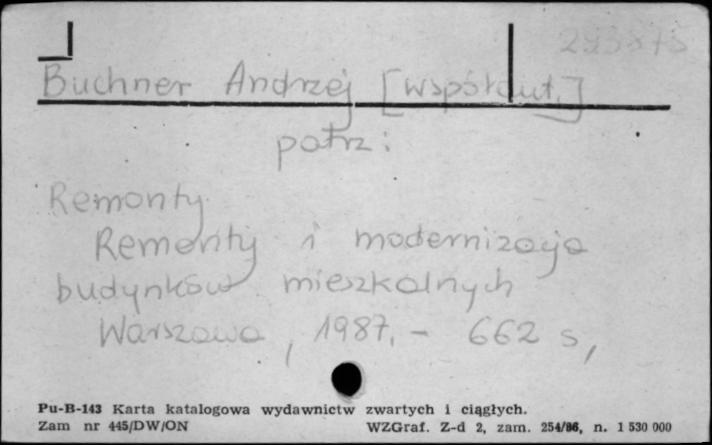 293875
Buchner Andrzej [współaut.]
patrz:
Remonty
Remonty i modernizacja
budynków mieszkalnych
Warszawa, 1987. - 662 s,
Pu-B-143 Karta katalogowa wydawnictw zwartych i ciągłych.
Zam nr 445/DW/ON WZGraf. Z-d 2, zam. 254/86, n. 1 530 000